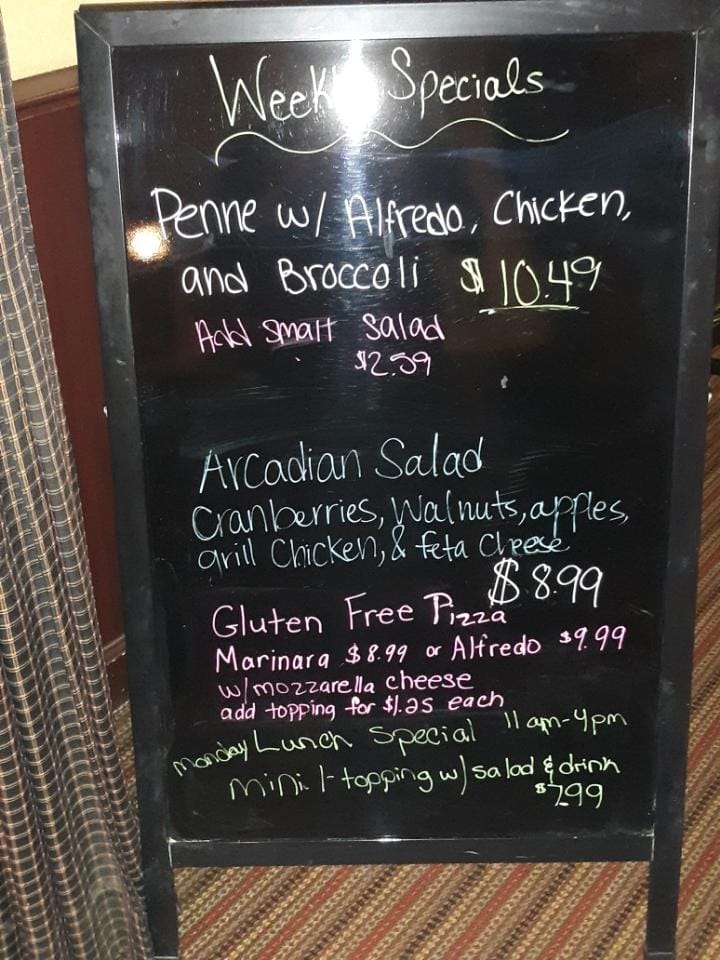 Weekly Specials
Penne w/ Alfredo, Chicken,
and Broccoli $10.49
Add Small Salad
$2.59
Arcadian Salad
Cranberries, Walnuts, apples,
grill Chicken, & feta Cheese
$8.99
Gluten Free Pizza
Marinara $8.99 or Alfredo $9.99
w/mozzarella cheese
add topping for $1.25 each
Monday Lunch Special 11am-4pm
mini 1-topping w/ salad & drink
$7.99